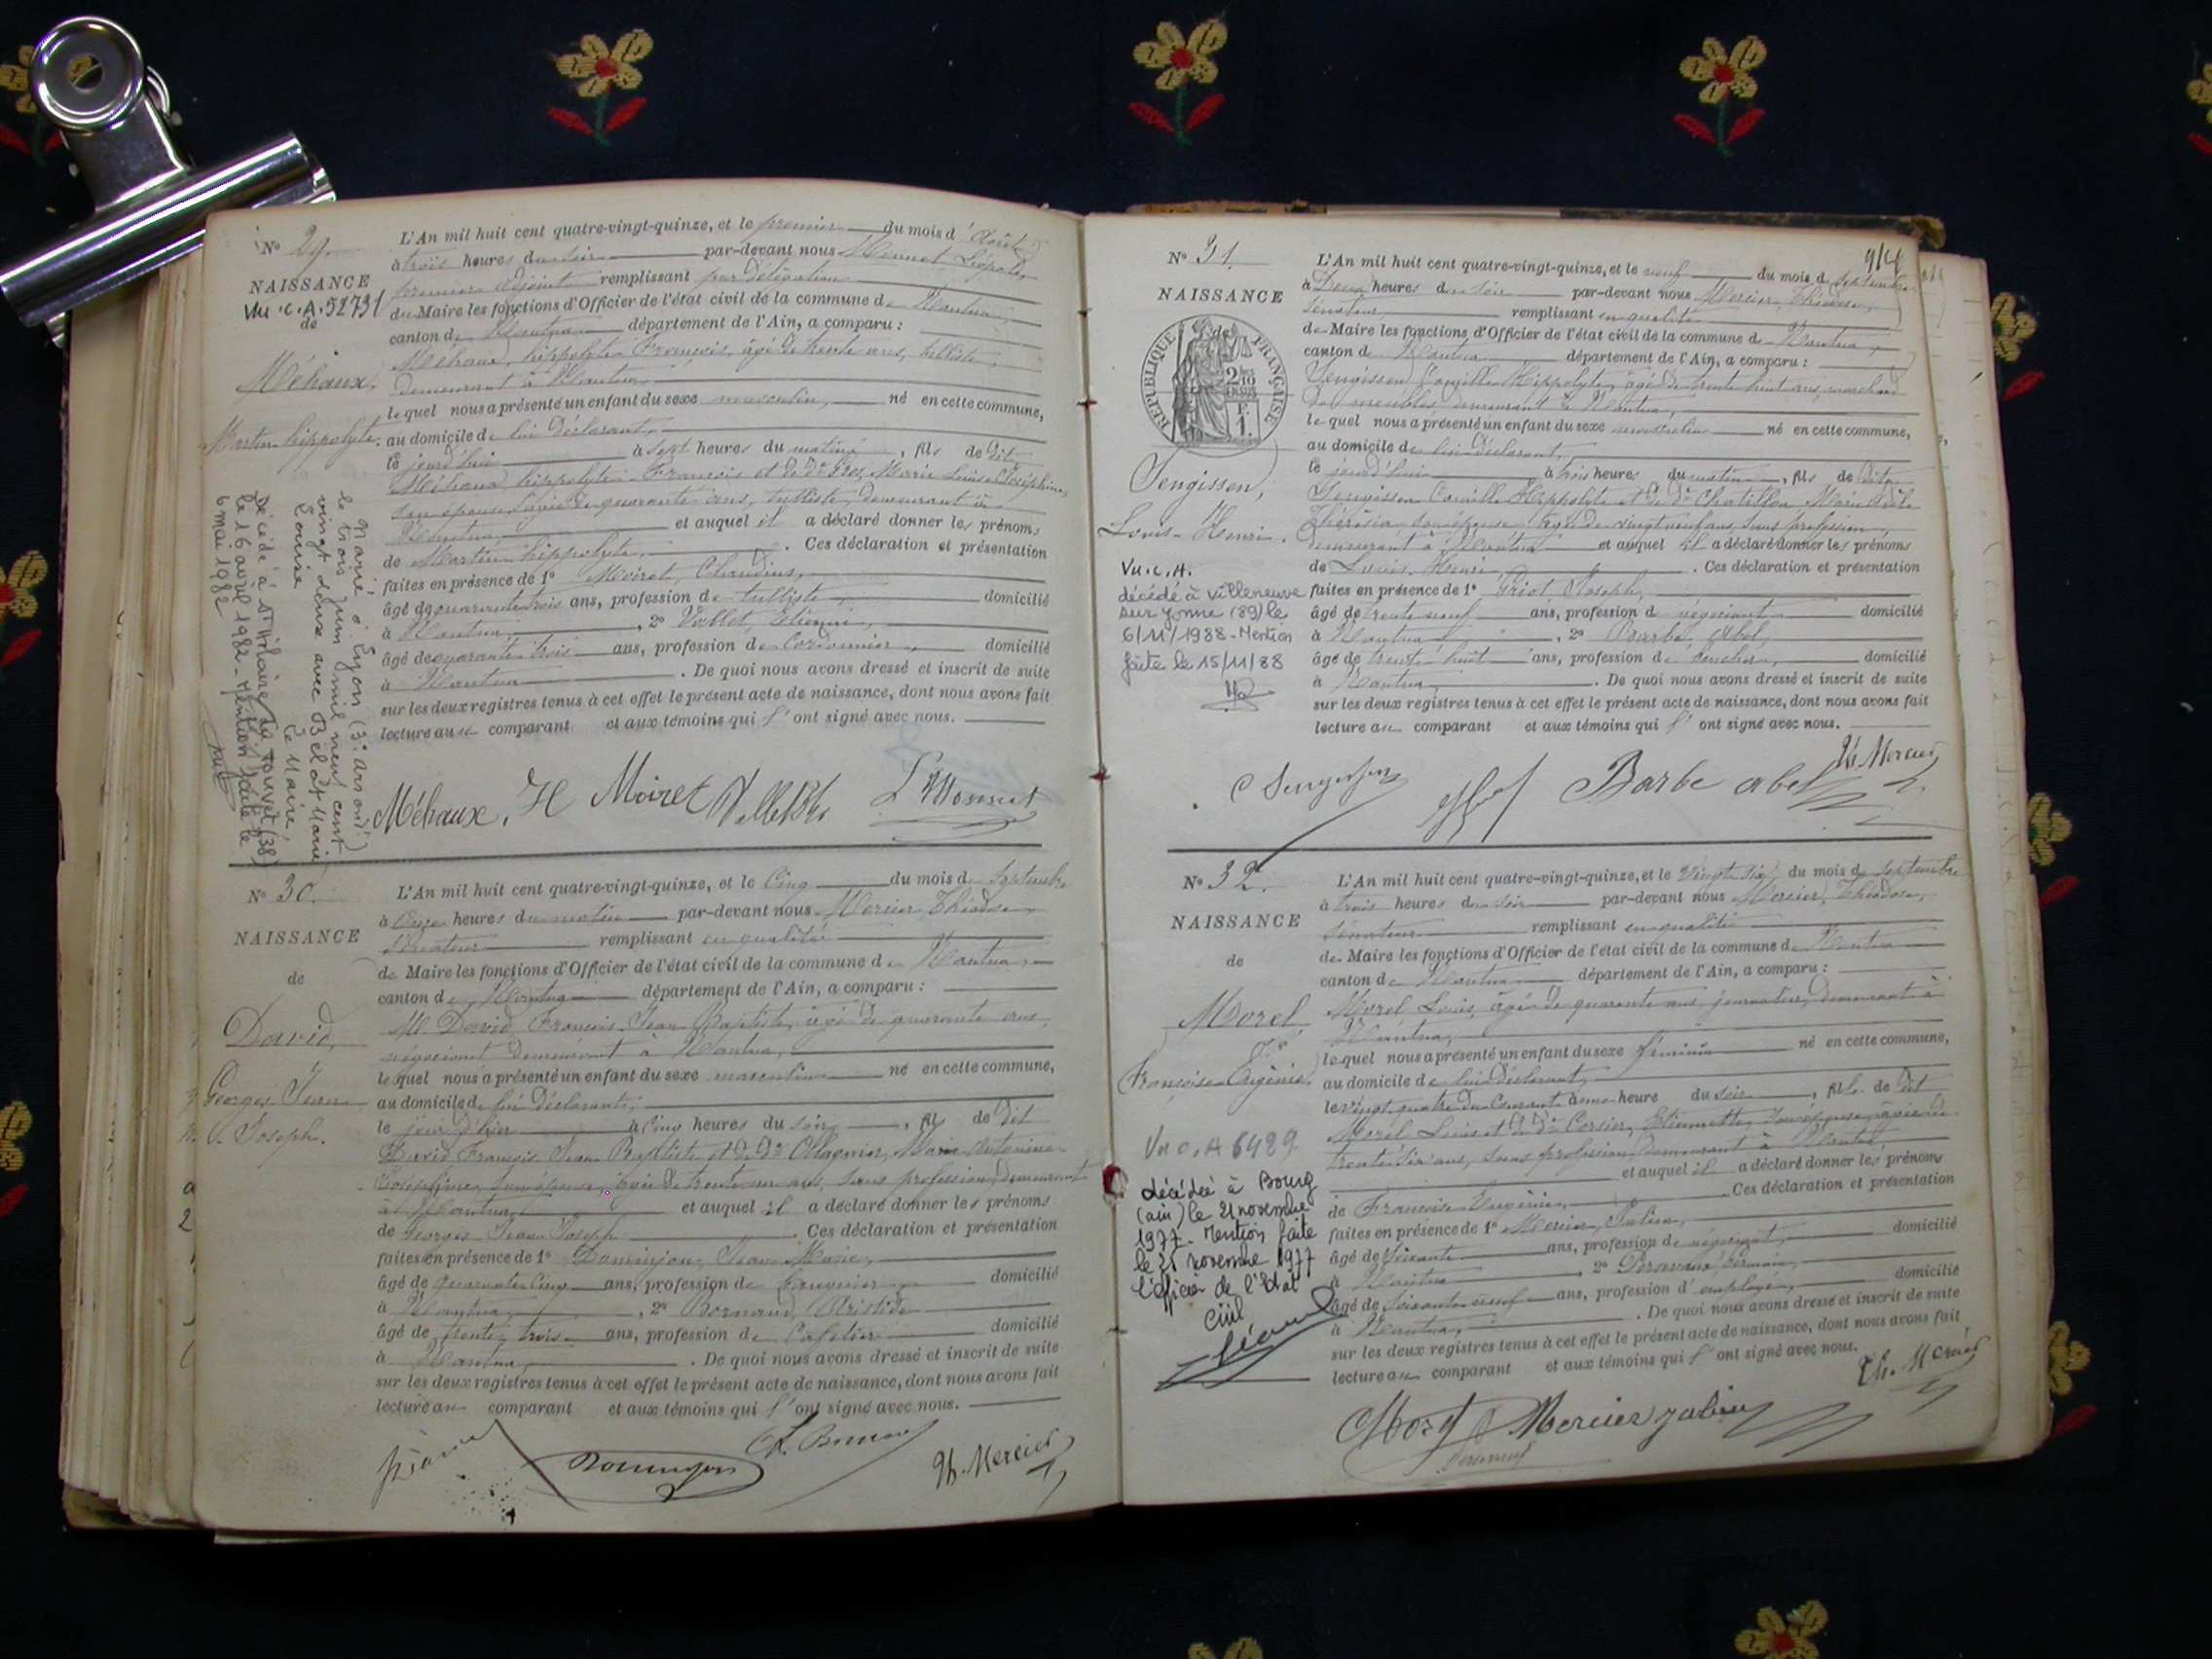 N° 29.
NAISSANCE
Vu.C.A.52731
de
Méhaux,
Martin hippolyte.
L'An mil huit cent quatre-vingt-quinze, et le premier du mois d'Août
à trois heures du soir par-devant nous Monnet Léopold,
premier adjoint remplissant par délégation
du Maire les fonctions d'Officier de l'état civil de la commune de Nantua,
canton de Nantua département de l'Ain, a comparu :
Méhaux, hippolyte François, âgé de trente ans, tulliste,
demeurant à Nantua
lequel nous a présenté un enfant du sexe masculin, né en cette commune,
au domicile de lui déclarant
le jourd'hui à sept heures du matin, fils de dit
Méhaux, hippolyte François et de De Gros, Marie Louise Joséphine,
son épouse, âgée de quarante ans, tulliste, demeurant à
Nantua, et auquel il a déclaré donner les prénoms
de Martin hippolyte, . Ces déclaration et présentation
faites en présence de 1° Moiret, Claudius,
âgé de quarante trois ans, profession de tulliste, domicilié
à Nantua, , 2° Vallet, Etienne,
âgé de quarante trois ans, profession de Cordonnier, domicilié
à Nantua . De quoi nous avons dressé et inscrit de suite
sur les deux registres tenus à cet effet le présent acte de naissance, dont nous avons fait
lecture au comparant et aux témoins qui l'ont signé avec nous.
Marié à Lyon (3e arrond)
le trois juin mil neuf cent
vingt douze avec Belat Marie
Louise
Le Maire,
Décédé à St Hilaire du Touvet (38)
le 16 avril 1982 - Mention faite le
6 mai 1982
Méhaux, H Moiret L Monnet
N° 30.
NAISSANCE
de
David,
Georges Jean
Joseph.
L'An mil huit cent quatre-vingt-quinze, et le Cinq du mois de Septembre
à Onze heures du matin par-devant nous Mercier Théodose,
Sénateur remplissant en qualité
de Maire les fonctions d'Officier de l'état civil de la commune de Nantua,
canton de Nantua département de l'Ain, a comparu :
M. David, François Jean Baptiste, âgé de quarante ans,
négociant demeurant à Nantua,
lequel nous a présenté un enfant du sexe masculin né en cette commune,
au domicile de lui déclarant,
le jour d'hier à Cinq heures du soir, fils de dit
David François Jean Baptiste et de De Ollagnier, Marie Antoinette
Joséphine, son épouse, âgée de trente un ans, sans profession, demeurant
à Nantua, et auquel il a déclaré donner les prénoms
de Georges Jean Joseph . Ces déclaration et présentation
faites en présence de 1° Dominjon, Jean Marie,
âgé de quarante Cinq ans, profession de domicilié
à Nantua, , 2° Bornand, Aristide
âgé de trente trois ans, profession de Cafetier domicilié
à Nantua, . De quoi nous avons dressé et inscrit de suite
sur les deux registres tenus à cet effet le présent acte de naissance, dont nous avons fait
lecture au comparant et aux témoins qui l'ont signé avec nous.
Dominjon Th. Mercier
N° 31.
NAISSANCE
de
RÉPUBLIQUE FRANÇAISE
2/10
EN SUS
F.
1.
Sengissen,
Louis-Henri.
Vu.C.A.
décédé à Villeneuve
sur Yonne (89) le
6/11/1988 - Mention
faite le 15/11/88
L'An mil huit cent quatre-vingt-quinze, et le neuf du mois de Septembre
à Deux heures du soir par-devant nous Mercier, Théodose,
Sénateur, remplissant en qualité
de Maire les fonctions d'Officier de l'état civil de la commune de Nantua,
canton de Nantua département de l'Ain, a comparu :
Sengissen, Camille Hippolyte, âgé de trente huit ans, marchand
de meubles, demeurant à Nantua,
lequel nous a présenté un enfant du sexe masculin né en cette commune,
au domicile de lui déclarant,
le jourd'hui à trois heures du matin, fils de dit
Sengissen Camille Hippolyte et de De Chatillon Marie Adèle
Thérésia, son épouse, âgée de vingt neuf ans, sans profession,
demeurant à Nantua et auquel il a déclaré donner les prénoms
de Louis Henri . Ces déclaration et présentation
faites en présence de 1° Griot Joseph,
âgé de trente neuf ans, profession de négociant domicilié
à Nantua , 2° Barbe, Abel,
âgé de trente huit ans, profession de boucher, domicilié
à Nantua, . De quoi nous avons dressé et inscrit de suite
sur les deux registres tenus à cet effet le présent acte de naissance, dont nous avons fait
lecture au comparant et aux témoins qui l'ont signé avec nous.
C Sengissen Barbe abel Th. Mercier
N° 32.
NAISSANCE
de
Morel
Françoise Eugénie.
Vu C.A 6429
décédée à Bourg
(ain) le 21 novembre
1977 - Mention faite
le 25 novembre 1977
l'officier de l'Etat
Civil
L'An mil huit cent quatre-vingt-quinze, et le Vingt six du mois de Septembre
à trois heures du soir par-devant nous Mercier, Théodose,
Sénateur remplissant en qualité
de Maire les fonctions d'Officier de l'état civil de la commune de Nantua
canton de Nantua département de l'Ain, a comparu :
Morel Louis, âgé de quarante ans, journalier, demeurant à
Nantua,
lequel nous a présenté un enfant du sexe féminin né en cette commune,
au domicile de lui déclarant,
le vingt quatre du Courant à une heure du soir, fille de dit
Morel Louis et de De Cersier, Etiennette, son épouse, âgée de
trente six ans, sans profession, demeurant à Nantua,
et auquel il a déclaré donner les prénoms
de Françoise Eugénie, . Ces déclaration et présentation
faites en présence de 1° Mercier, Julien,
âgé de soixante ans, profession de négociant, domicilié
à Nantua , 2° Germain,
âgé de soixante neuf ans, profession d'employé, domicilié
à Nantua, . De quoi nous avons dressé et inscrit de suite
sur les deux registres tenus à cet effet le présent acte de naissance, dont nous avons fait
lecture au comparant et aux témoins qui l'ont signé avec nous.
Morel Mercier Julien Th. Mercier